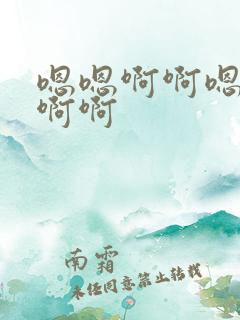 嗯嗯啊啊嗯
啊啊
南霜
未经同意禁止转载